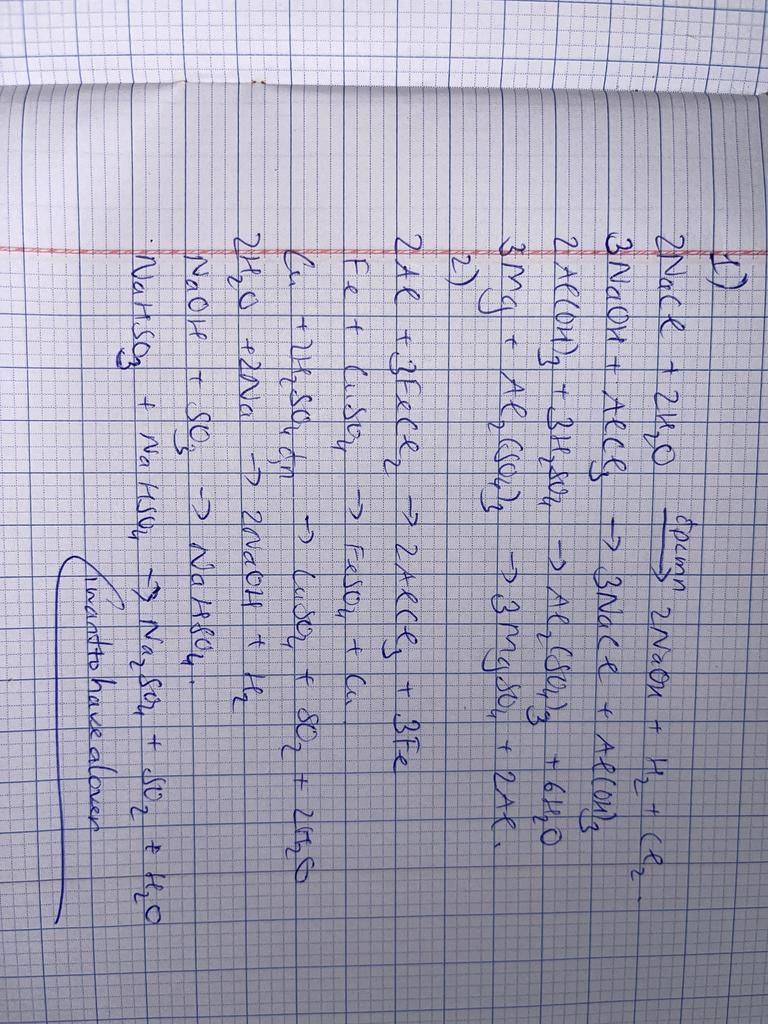 1)
2NaCl + 2H₂O đpcmn → 2NaOH + H₂ + Cl₂.
3NaOH + AlCl₃ → 3NaCl + Al(OH)₃
2Al(OH)₃ + 3H₂SO₄ → Al₂(SO₄)₃ + 6H₂O
3Mg + Al₂(SO₄)₃ → 3MgSO₄ + 2Al.
2)
2Al + 3FeCl₂ → 2AlCl₃ + 3Fe
Fe + CuSO₄ → FeSO₄ + Cu
Cu + 2H₂SO₄ đn → CuSO₄ + SO₂ + 2H₂O
2H₂O + 2Na → 2NaOH + H₂
NaOH + SO₃ → NaHSO₄.
NaHSO₃ + NaHSO₄ → Na₂SO₄ + SO₂ + H₂O
I want to have a lover